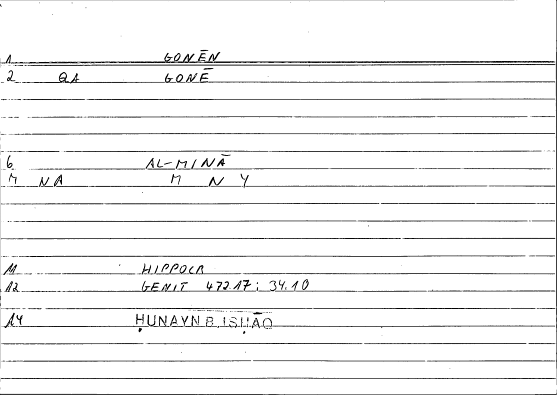 1 GONĒN
2 QA GONĒ
6 AL-MINĀ
M NA M N Y
11 HIPPOCR
12 GENIT 472.17; 34.10
14 ḤUNAYN B. ISḤĀQ